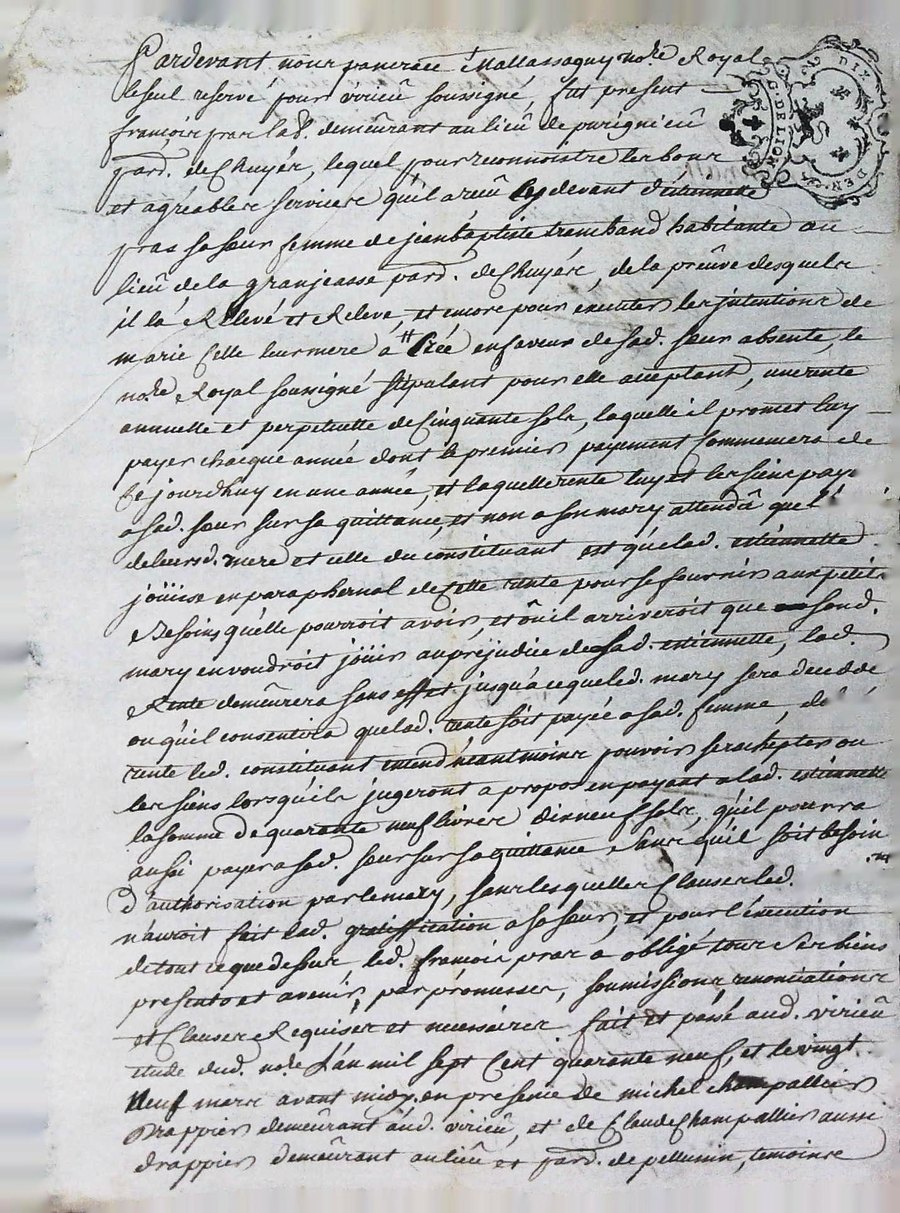 Pardevant nous pancrace Mallassagny no.re Royal
le seul reservé pour virieû soussigné, fut present
françois pras lab.r demeûrant au lieû de purignieû
G. DE LION
DIX DEN.
par.d de Chuyér, lequel pour reconnoistre les bons
et agréables services qu'il a reçû cy devant d'etiennette
pras sa sœur femme de jean baptiste tremband habitante au
lieû de la granjeasse par.d de Chuyér, de la preûve desquels
il l'à Relevé et Releve et encore pour executer les intentions de
marie Celle leur mere à Créé en faveur de sad. sœur absente, le
no.re Royal soussigné stipulant pour elle acceptant, une rente
annuelle et perpetuelle de Cinquante sols, laquelle il promet luy
payer chaque année dont le premier payement Commencera de
Ce jourdhuy en une année, et laquelle rente luy et les siens paye
a sad. sœur sur sa quittance, et non a son mary attendû que l'
de leurd. mere et celle du constituant est que lad. etiennette
joüisse en paraphernal de Cette rente pour se fournir aux petits
Besoins qu'elle pourroit avoir, et où il arriveroit que sond.
mary en voudroit joüir au préjudice de sad. etiennette, lad.
Rente demeûrera sans effet jusqu'à ce que led. mary sera decedé
ou qu'il consentira que lad. rente soit payée a sad. femme, de
rente led. constituant entend néantmoins pouvoir se rachepter ou
les siens lorsqu'ils jugeront a propos en payant a lad. etiennette
la somme de quarante neuf livres dix neuf sols, qu'il pourra
aussi payer a sad. sœur sur sa quittance sans qu'il soit besoin
d'authorisation par le mary, sans lesquelles Clauses led.
n'auroit fait lad. gratiffication a sa sœur, et pour l'execution
de tout ce que dessus, led. françois pras a obligé tous ses biens
presents et avenir, par promesses, soumissions renonciations
et Clauses Requises et necessaires fait et passé aud. virieû
etude dud. no.re L'an mil sept Cent quarante neuf, et le vingt
neuf mars avant midy en presence de michel champallier
Drappier demeûrant aud. virieû, et de Claude Champallier aussi
drappier demeûrant au lieû et par.d de pellussin, temoins